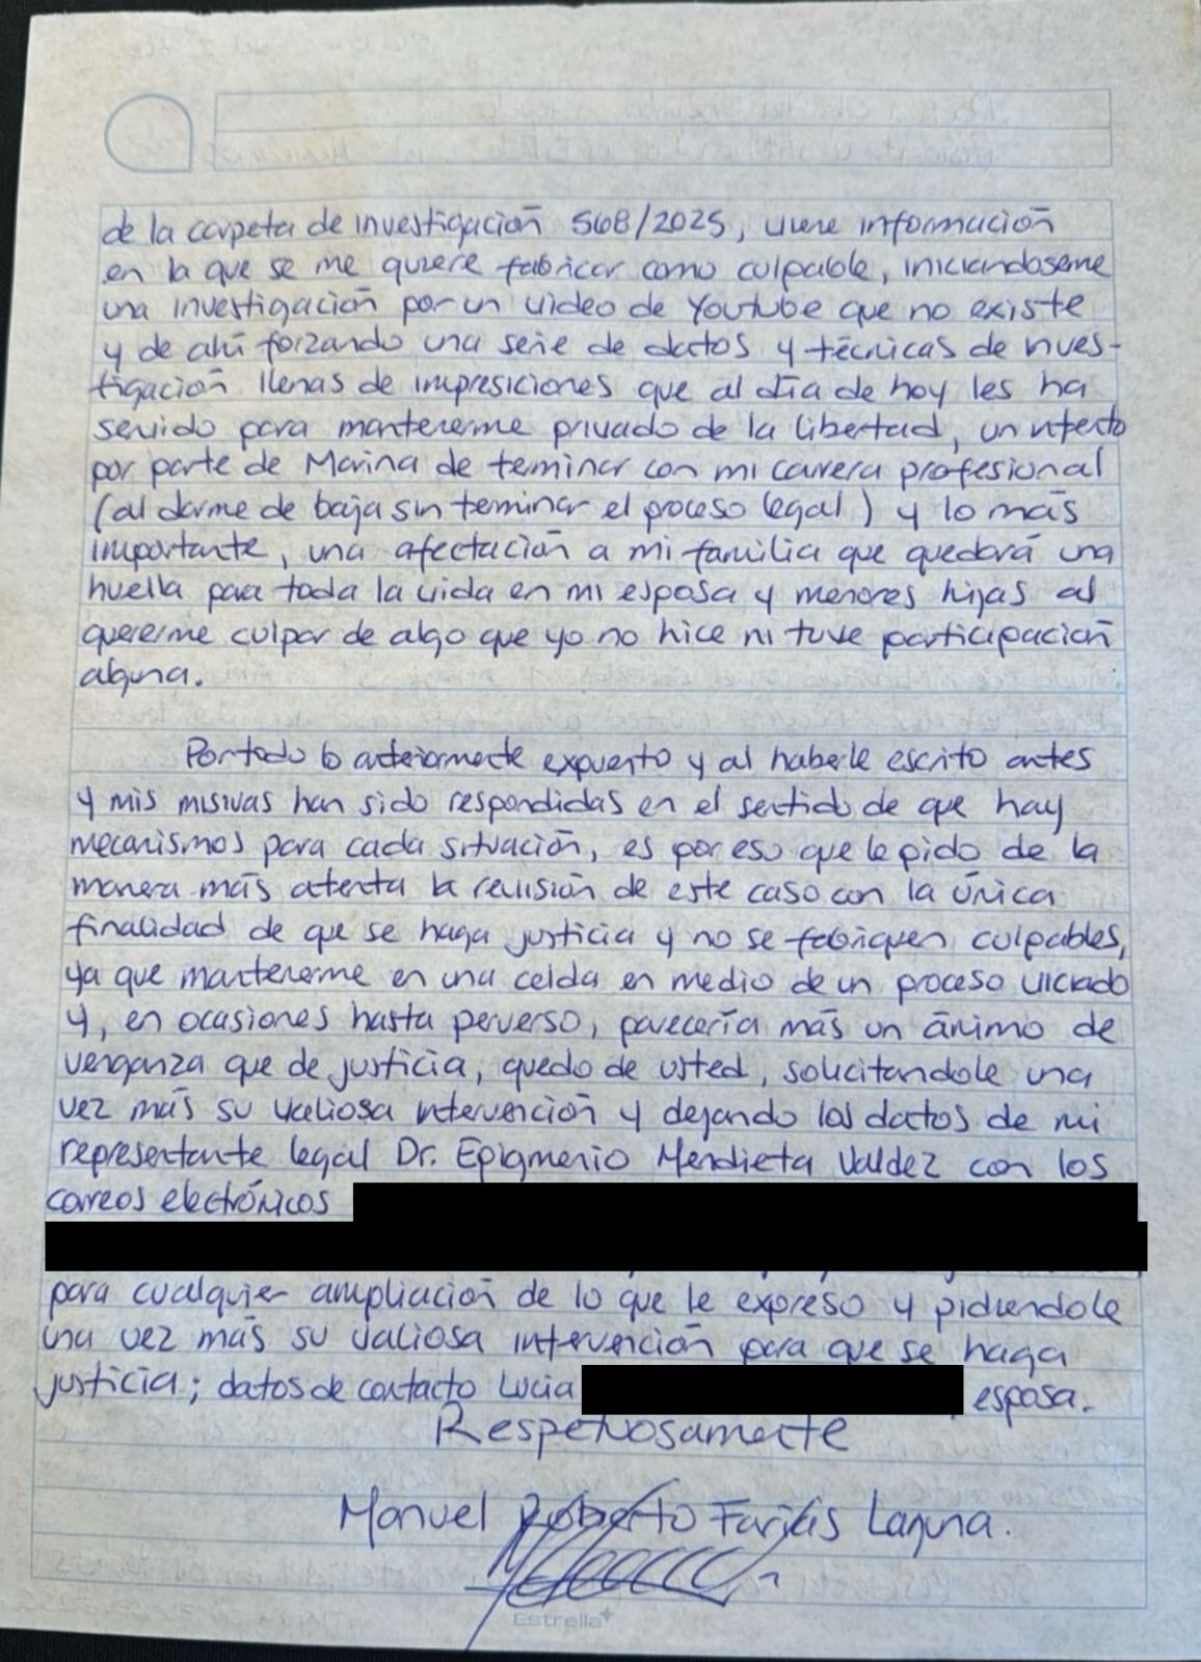 de la carpeta de investigación 568/2025, viene información
en la que se me quiere fabricar como culpable, iniciandoseme
una investigación por un video de Youtube que no existe
y de ahí forzando una serie de datos y técnicas de nves-
tigación llenas de impresiciones que al día de hoy les ha
servido para mantenerme privado de la libertad, un intento
por parte de Marina de teminar con mi carrera profesional
(al darme de baja sin teminar el proceso legal) y lo más
importante, una afectación a mi familia que quedará una
huella para toda la vida en mi esposa y menores hijas al
quererme culpar de algo que yo no hice ni tuve participación
alguna.
Por todo lo anteriormente expuesto y al haberle escrito antes
y mis misivas han sido respondidas en el sentido de que hay
mecanismos para cada situación, es por eso que le pido de la
manera más atenta la revisión de este caso con la única
finalidad de que se haga justicia y no se fabriquen culpables,
ya que mantenerme en una celda en medio de un proceso viciado
y, en ocasiones hasta perverso, parecería más un ánimo de
venganza que de justicia, quedo de usted, solicitandole una
vez más su valiosa intervención y dejando los datos de mi
representante legal Dr. Epigmenio Mendieta Valdez con los
correos electrónicos
para cualquier ampliación de lo que le expreso y pidiendole
una vez más su valiosa intervención para que se haga
justicia; datos de contacto Lucia esposa.
Respetuosamente
Manuel Roberto Farías Laguna.
Estrella